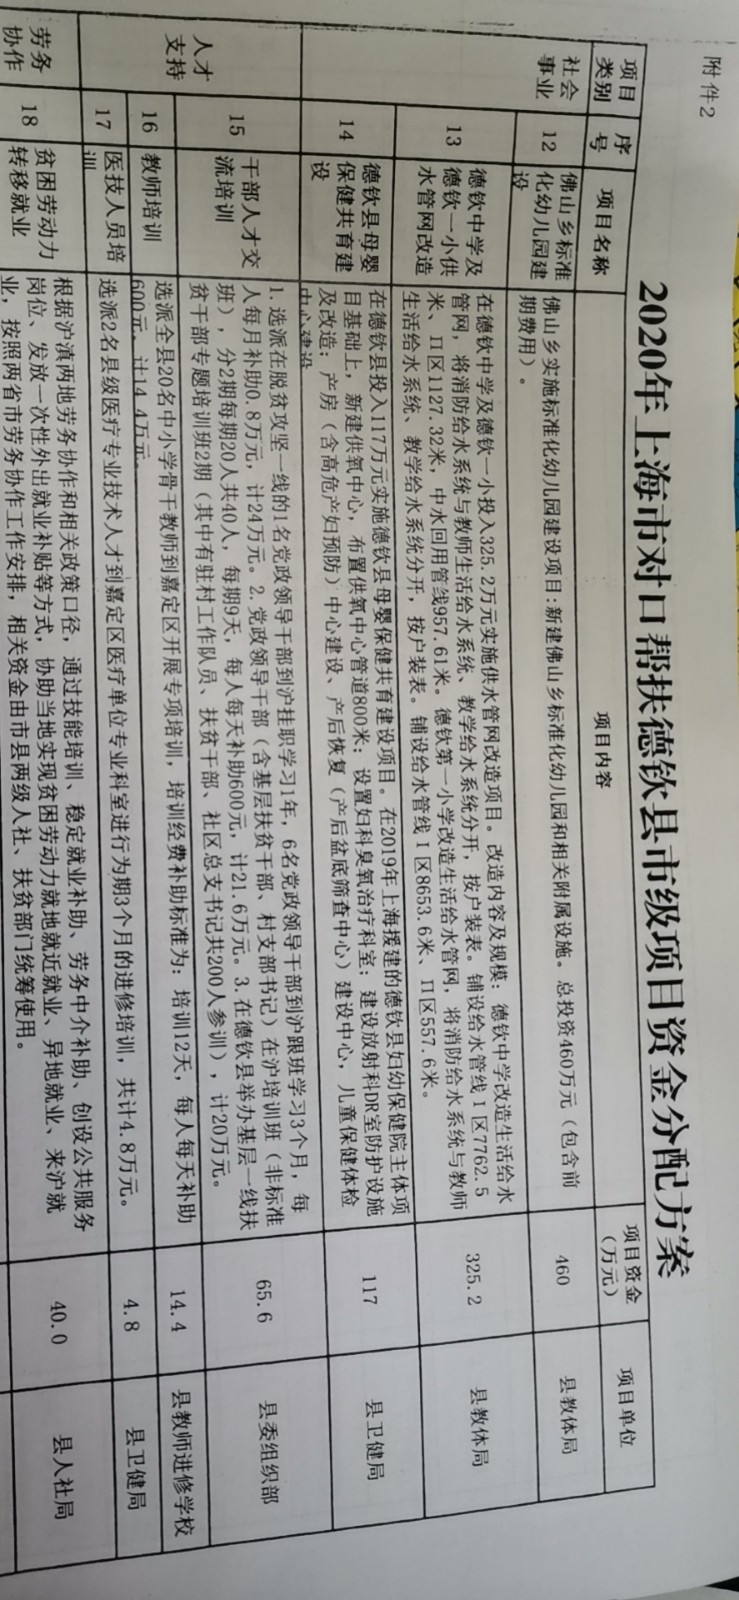 附件2
2020年上海市对口帮扶德钦县市级项目资金分配方案
项目
类别
序
号
项目名称
项目内容
项目资金
(万元)
项目单位
社会
事业
12
佛山乡标准
化幼儿园建
设
佛山乡实施标准化幼儿园建设项目:新建佛山乡标准化幼儿园和相关附属设施。总投资460万元(包含前
期费用)。
460
县教体局
13
德钦中学及
德钦一小供
水管网改造
在德钦中学及德钦一小投入325.2万元实施供水管网改造项目。改造内容及规模:德钦中学改造生活给水
管网,将消防给水系统与教师生活给水系统、教学给水系统分开,按户装表。铺设给水管线Ⅰ区7762.5
米、Ⅱ区1127.32米,中水回用管线957.61米。德钦第一小学改造生活给水管网,将消防给水系统与教师
生活给水系统、教学给水系统分开,按户装表。铺设给水管线Ⅰ区8653.6米、Ⅱ区557.6米。
325.2
县教体局
14
德钦县母婴
保健共育建
设
在德钦县投入117万元实施德钦县母婴保健共育建设项目。在2019年上海援建的德钦县妇幼保健院主体项
目基础上,新建供氧中心,布置供氧中心管道800米;设置妇科臭氧治疗科室;建设放射科DR室防护设施
及改造;产房(含高危产妇预防)中心建设、产后恢复(产后盆底筛查中心)建设中心,儿童保健体检
中心建设
117
县卫健局
人才
支持
15
干部人才交
流培训
1.选派在脱贫攻坚一线的1名党政领导干部到沪挂职学习1年,6名党政领导干部到沪跟班学习3个月,每
人每月补助0.8万元,计24万元。2.党政领导干部(含基层扶贫干部、村支部书记)在沪培训班(非标准
班),分2期每期20人共40人,每期9天,每人每天补助600元,计21.6万元。3.在德钦县举办基层一线扶
贫干部专题培训班2期(其中有驻村工作队员、扶贫干部、社区总支书记共200人参训),计20万元。
65.6
县委组织部
16
教师培训
选派全县20名中小学骨干教师到嘉定区开展专项培训,培训经费补助标准为:培训12天,每人每天补助
600元,计14.4万元。
14.4
县教师进修学校
17
医技人员培
训
选派2名县级医疗专业技术人才到嘉定区医疗单位专业科室进行为期3个月的进修培训,共计4.8万元。
4.8
县卫健局
劳务
协作
18
贫困劳动力
转移就业
根据沪滇两地劳务协作和相关政策口径,通过技能培训、稳定就业补助、劳务中介补助、创设公共服务
岗位、发放一次性外出就业补贴等方式,协助当地实现贫困劳动力就地就近就业、异地就业、来沪就
业,按照两省市劳务协作工作安排,相关资金由市县两级人社、扶贫部门统筹使用。
40.0
县人社局